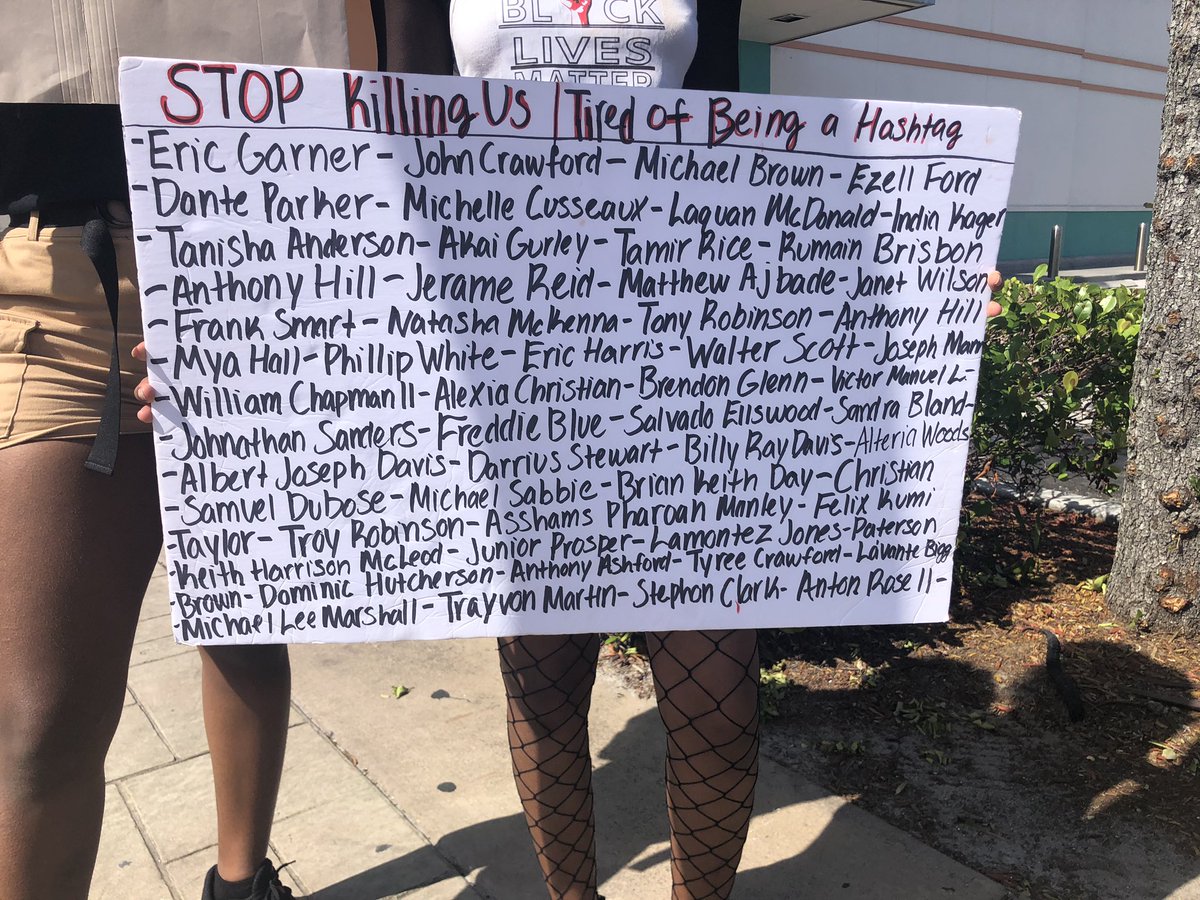 BLACK
LIVES
MATTER
STOP Killing Us | Tired of Being a Hashtag
-Eric Garner- John Crawford- Michael Brown- Ezell Ford
-Dante Parker- Michelle Cusseaux- Laquan McDonald- India Kager
-Tanisha Anderson- Akai Gurley- Tamir Rice- Rumain Brisbon
-Anthony Hill- Jerame Reid- Matthew Ajbade- Janet Wilson
-Frank Smart- Natasha McKenna- Tony Robinson- Anthony Hill
-Mya Hall- Phillip White- Eric Harris- Walter Scott- Joseph Mann
-William Chapman II- Alexia Christian- Brendon Glenn- Victor Manuel L.-
-Johnathan Sanders- Freddie Blue- Salvado Ellswood- Sandra Bland-
-Albert Joseph Davis- Darrius Stewart- Billy Ray Davis- Alteria Woods
-Samuel Dubose- Michael Sabbie- Brian Keith Day- Christian
-Taylor- Troy Robinson- Asshams Pharoah Manley- Felix Kumi
-Keith Harrison McLeod- Junior Prosper- Lamontez Jones- Paterson
-Brown- Dominic Hutcherson- Anthony Ashford- Tyree Crawford- Lavante Bigg
-Michael Lee Marshall- Trayvon Martin- Stephon Clark- Anton Rose II-